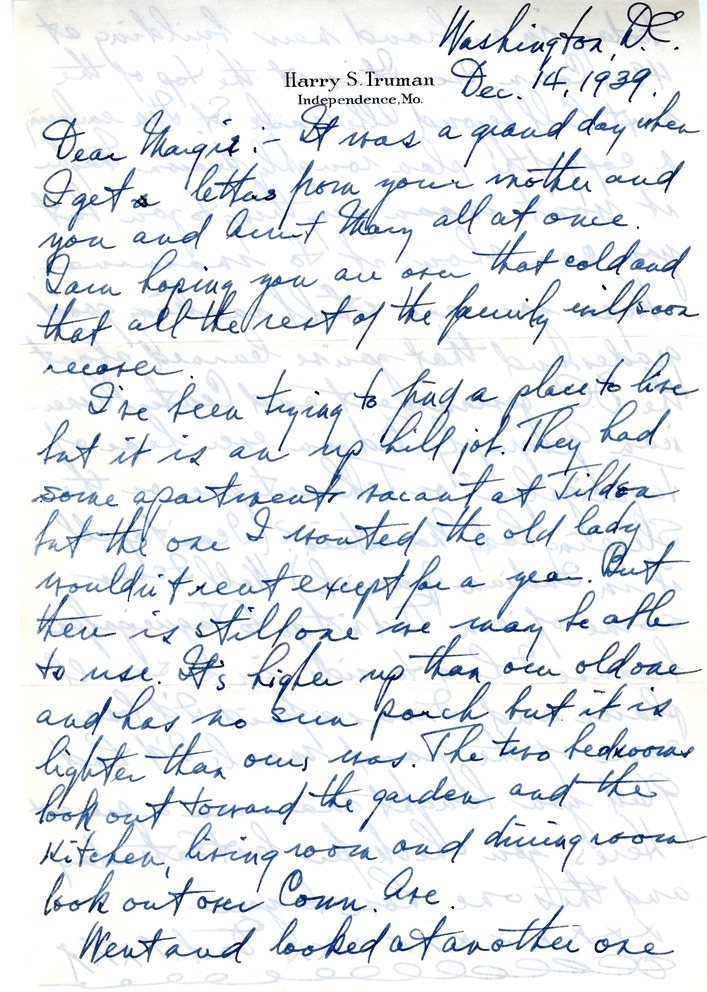 Washington, D.C.
Harry S. Truman
Independence, Mo.
Dec. 14, 1939.
Dear Margie:- It was a grand day when
I get a letters from your mother and
you and Aunt Mary all at once.
I am hoping you are over that cold and
that all the rest of the family will soon
recover.
I've been trying to find a place to live
but it is an up hill job. They had
some apartments vacant at Tilden
but the one I wanted the old lady
wouldn't rent except for a year. But
there is still one we may be able
to use. It's higher up than our old one
and has no sun porch but it is
lighter than ours was. The two bedrooms
look out toward the garden and the
Kitchen, living room and dining room
look out over Conn. Ave.
Went and looked at another one